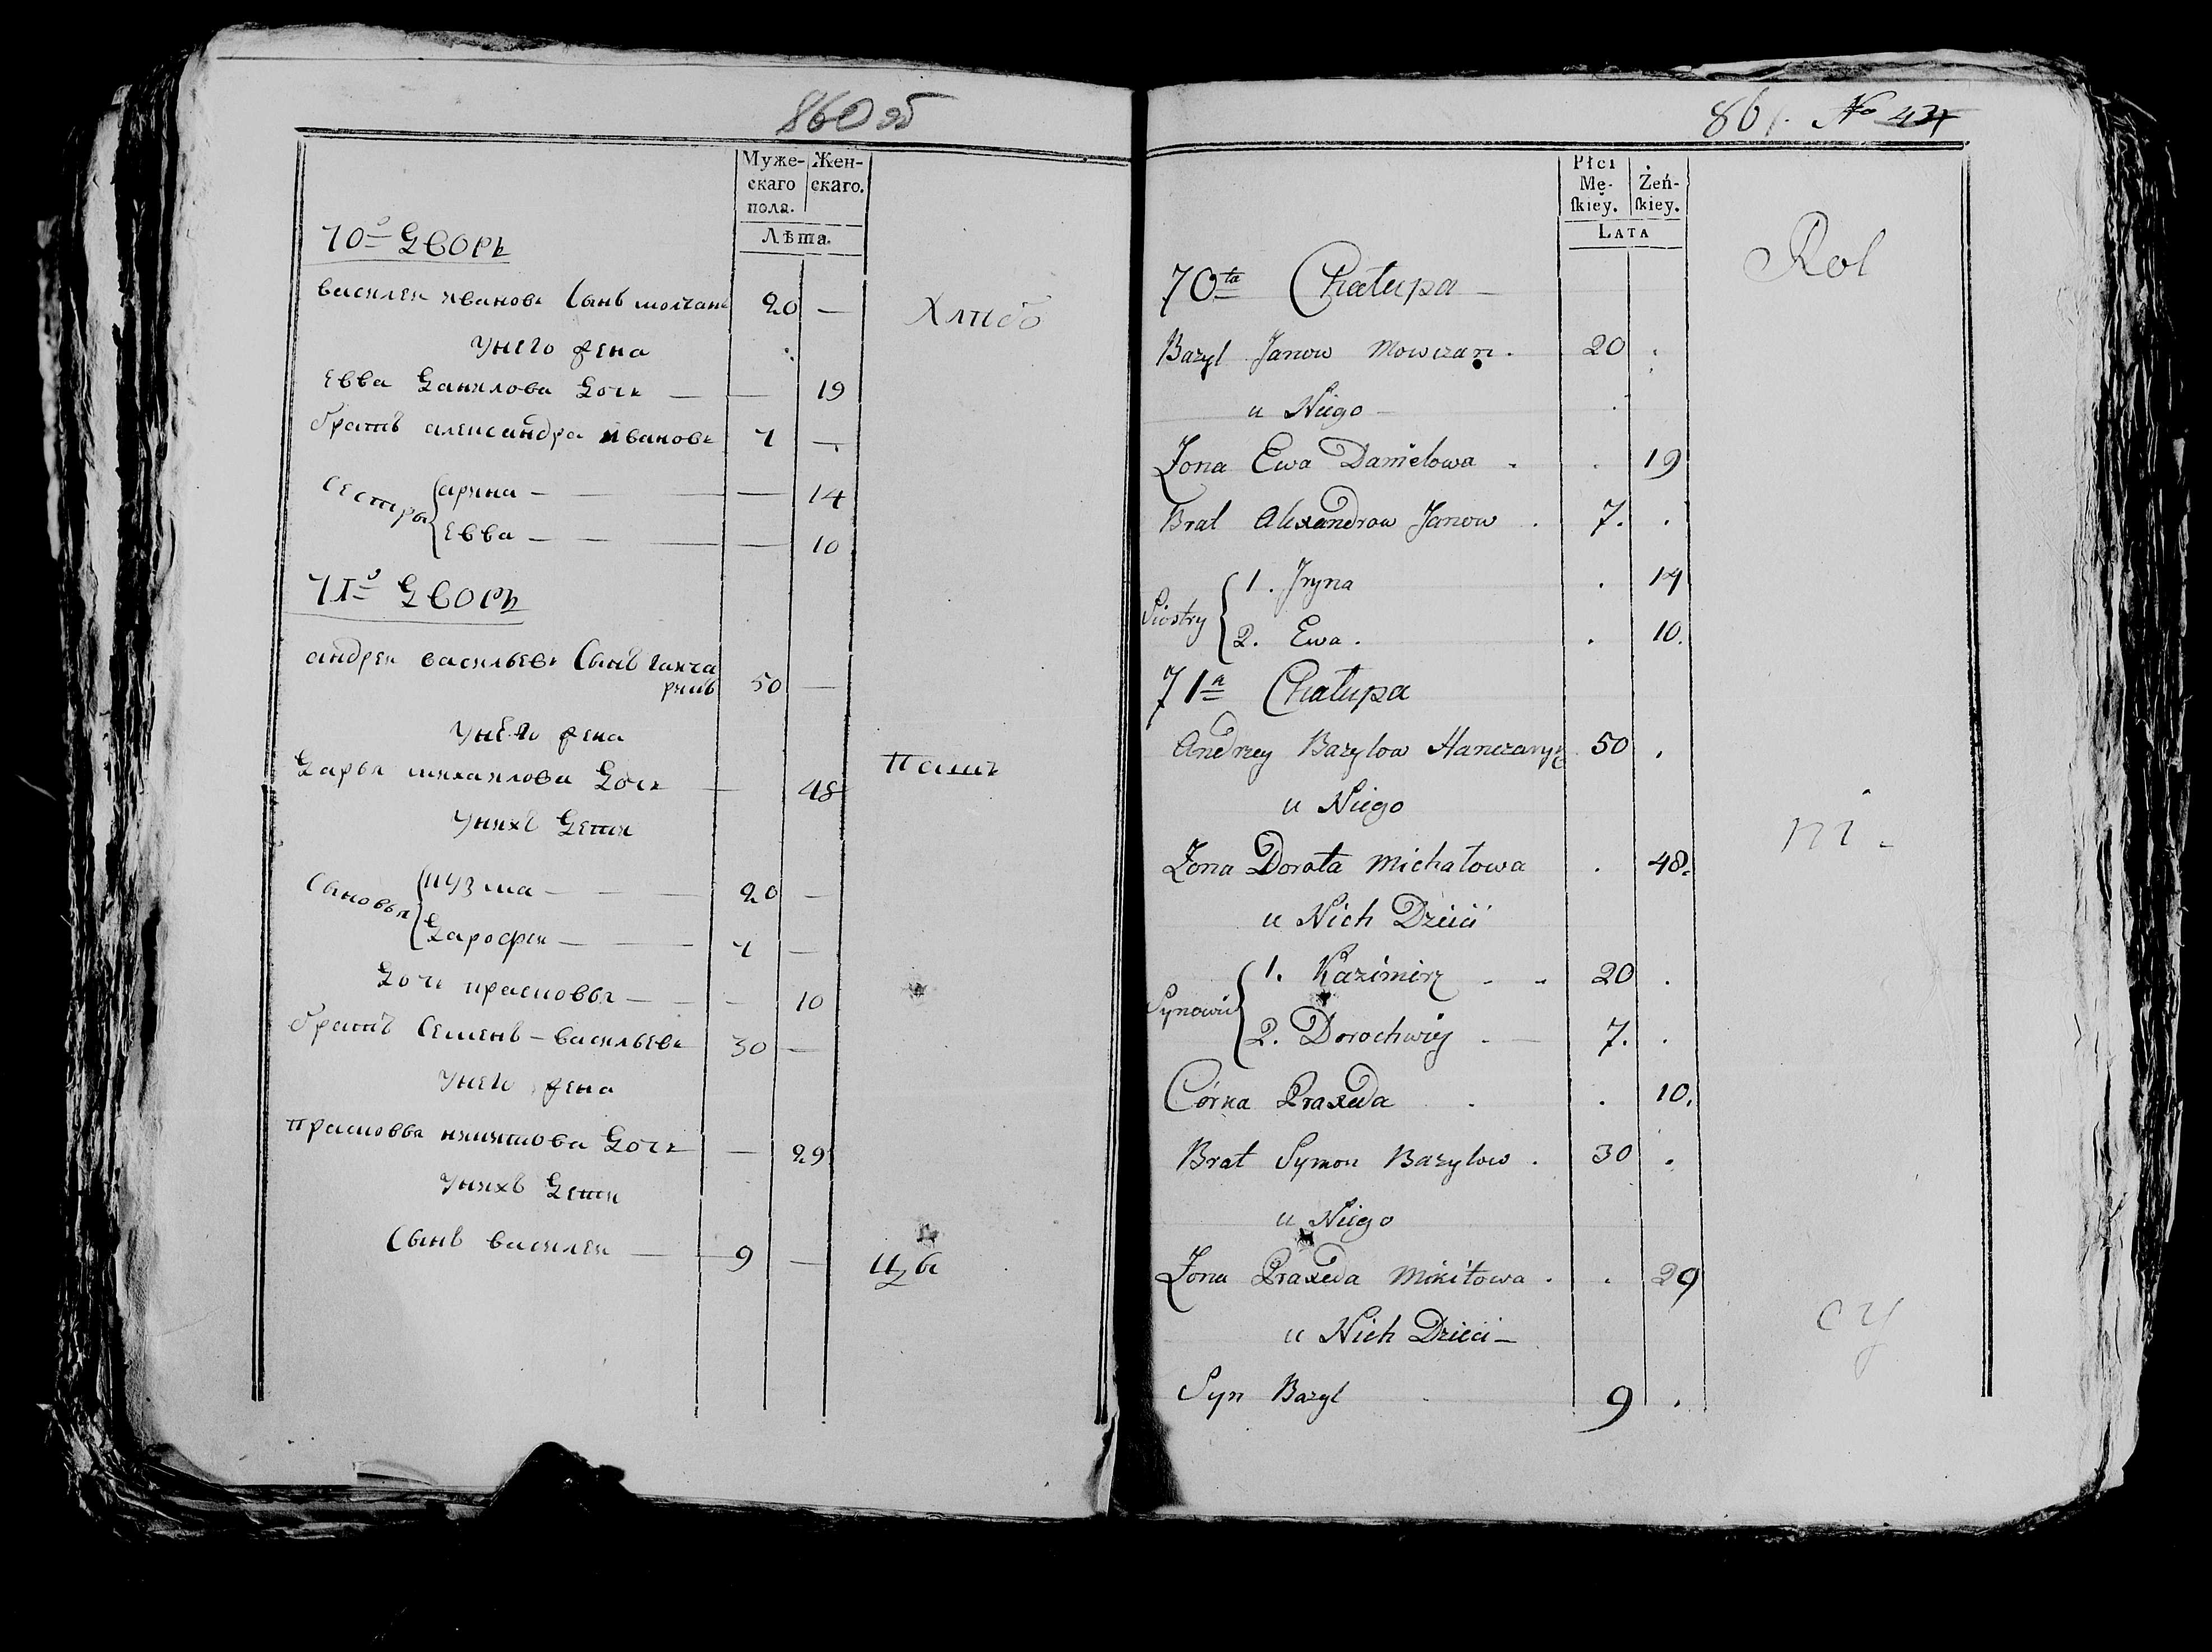 860 об
Муже-
скаго
пола.
Жен-
скаго.
Лѣта.
70й Дворъ
василеи иванове Сынъ молчане 20 —
Унего жена
Евва Данилова Дочь — — 19
братъ александра иванове 7 —
Сестры
арина — — — — 14
Евва — — — — 10
71й Дворъ
андреи васильеве Сынъ ганча
рикъ 50 —
Унего жена
Дарья михаилова Дочь — 48
Унихъ Дети
Сыновья
кузма — — — 20 —
Дарофеи — — — 7 —
Дочь прасковья — — — 10
братъ Семенъ — васильеве 30 —
Унего жена
прасковва никитова Дочь — 29
Унихъ Дети
Сынъ василеи — 9 —
Хлѣбо
Паш
цы
861. No
Płci
Mę-
ſkiey.
Żeń-
ſkiey.
LATA
70ta Chałupa —
Bazyl Janow Mowczan . 20 .
u Niego —
Zona Ewa Danielowa . . 19
Brat Alexandrow Janow . 7. .
Siostry
1. Jryna . 14
2. Ewa . . 10.
71a Chałupa
Andrzey Bazylow Hanczaryk 50 .
u Niego
Zona Dorota Michałowa . 48.
u Nich Dzieci
Synowie
1. Kazimirz - - 20 .
2. Dorochwiey - — 7. .
Córka Praxeda . . 10.
Brat Symon Bazylow . 30 .
u Niego
Zona Praxeda Mikitowa . . 29
u Nich Dzieci —
Syn Bazyl 9 .
Rol
ni -
cy